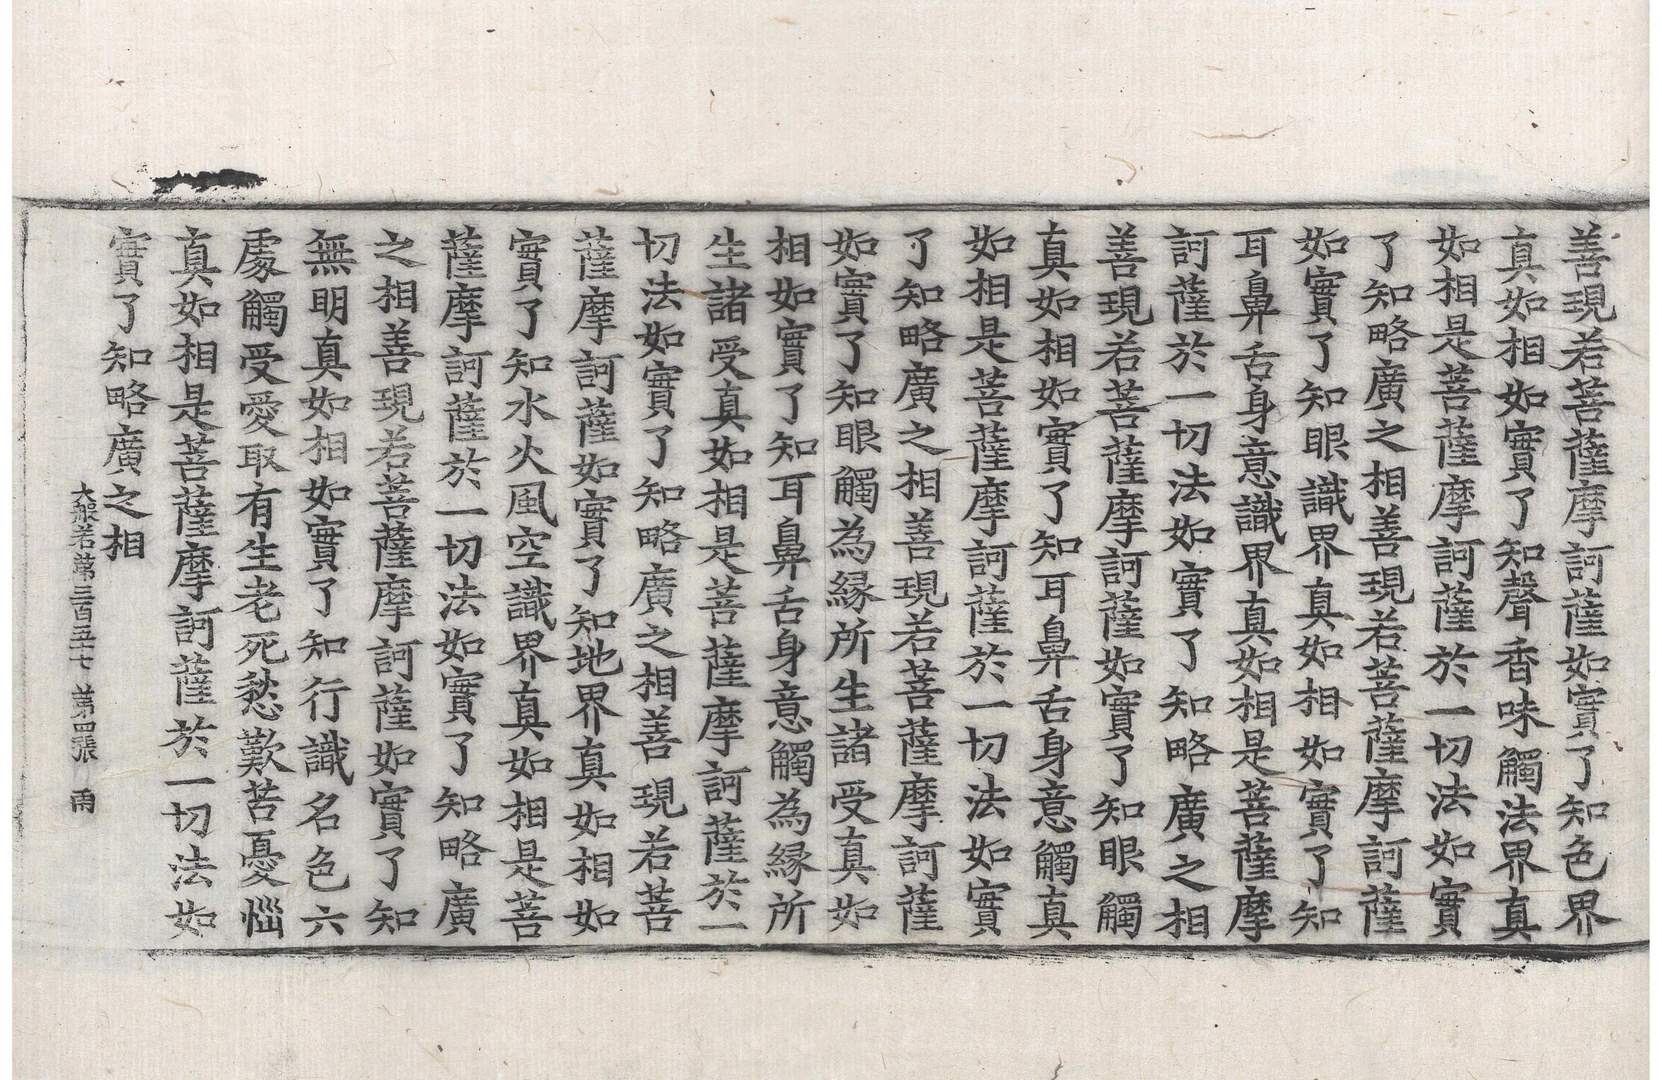 善現若菩薩摩訶薩如實了知色界
真如相如實了知聲香味觸法界真
如相是菩薩摩訶薩於一切法如實
了知略廣之相善現若菩薩摩訶薩
如實了知眼識界真如相如實了知
耳鼻舌身意識界真如相是菩薩摩
訶薩於一切法如實了知略廣之相
善現若菩薩摩訶薩如實了知眼觸
真如相如實了知耳鼻舌身意觸真
如相是菩薩摩訶薩於一切法如實
了知略廣之相善現若菩薩摩訶薩
如實了知眼觸為緣所生諸受真如
相如實了知耳鼻舌身意觸為緣所
生諸受真如相是菩薩摩訶薩於一
切法如實了知略廣之相善現若菩
薩摩訶薩如實了知地界真如相如
實了知水火風空識界真如相是菩
薩摩訶薩於一切法如實了知略廣
之相善現若菩薩摩訶薩如實了知
無明真如相如實了知行識名色六
處觸受愛取有生老死愁歎苦憂惱
真如相是菩薩摩訶薩於一切法如
實了知略廣之相
大般若第三百五十七 第四張 雨